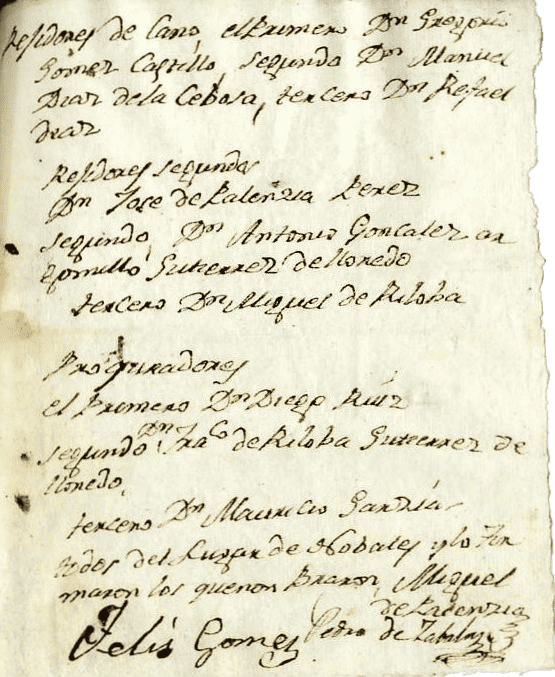 Rejidores de Cano, el Primero Dn Gregorio
Gomez Castillo, segundo Dn Manuel
Diaz de la Cebosa, tercero Dn Rafael
diaz
Rejidores segundos
Dn Jose de Palenzia Perez
segundo, Dn Antonio Gonzalez ar
gomillo Gutierrez de llonedo
tercero Dn Miguel de Riloba
Procuradores
el Primero Dn Diego Ruiz
segundo Dn Fraco de Riloba Gutierrez de
llonedo,
terceno Dn Mauricio Garzia
todos del Lugar de Obales y lo fir
maron los quenon Braron, Miguel
de Palenzia
Felis Gomez Pedro de Zabala